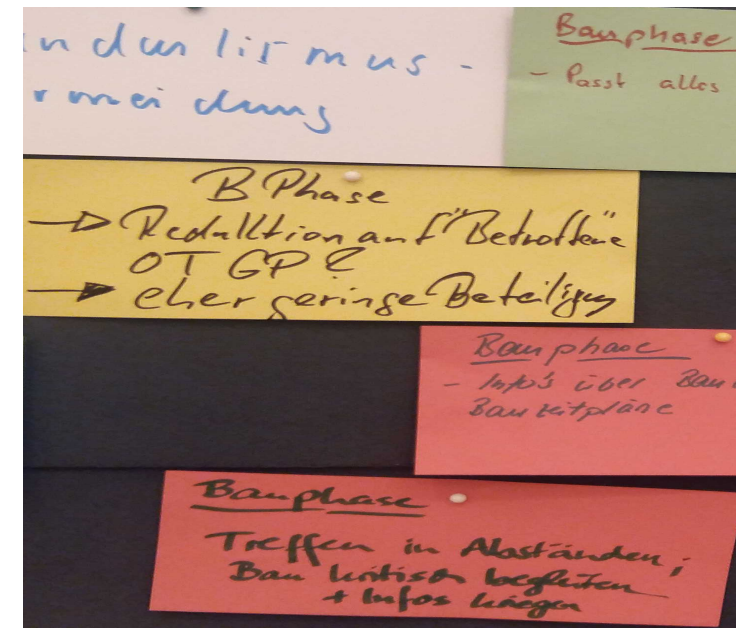 ndalismus -
rmeidung
Bauphase
- Passt alles
B Phase
→ Reduktion auf "Betroffene"
OT GP ?
→ eher geringe Beteiligung
Bauphase
- Info's über Bau
Bauzeitpläne
Bauphase
Treffen in Abständen;
Bau kritisch begleiten
+ Infos kriegen